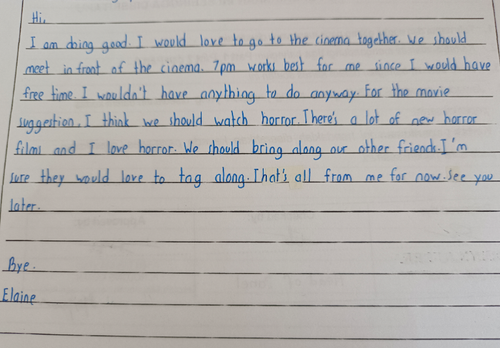 Hi,
I am doing good. I would love to go to the cinema together. We should
meet in front of the cinema. 7pm works best for me since I would have
free time. I wouldn't have anything to do anyway. For the movie
suggestion, I think we should watch horror. There's a lot of new horror
films and I love horror. We should bring along our other friends. I'm
sure they would love to tag along. That's all from me for now. See you
later.
Bye.
Elaine